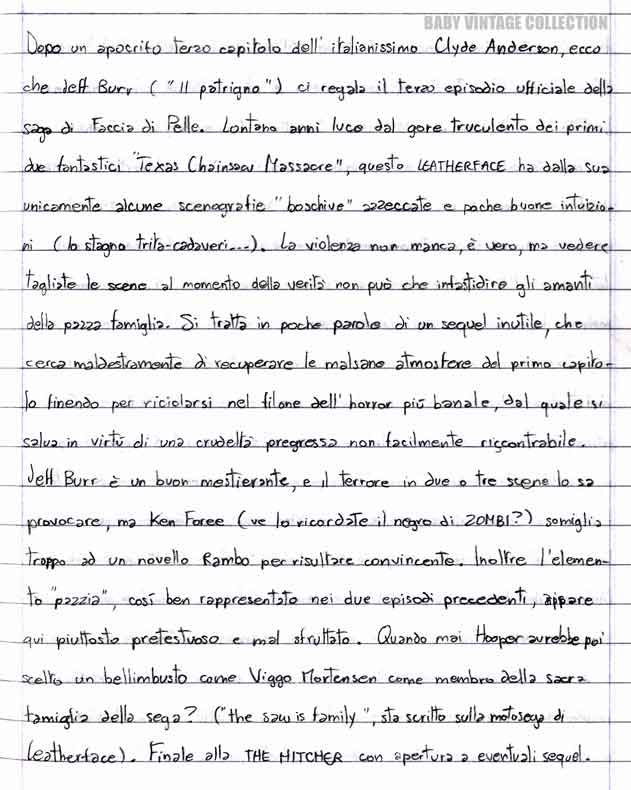 BABY VINTAGE COLLECTION
Dopo un apocrifo terzo capitolo dell'italianissimo Clyde Anderson, ecco
che Jeff Burr ("Il patrigno") ci regala il terzo episodio ufficiale della
saga di Faccia di Pelle. Lontano anni luce dal gore truculento dei primi
due fantastici "Texas Chainsaw Massacre", questo LEATHERFACE ha dalla sua
unicamente alcune scenografie "boschive" azzeccate e poche buone intuizio-
ni (lo stagno trita-cadaveri...). La violenza non manca, è vero, ma vedere
tagliate le scene al momento della verità non può che infastidire gli amanti
della pazza famiglia. Si tratta in poche parole di un sequel inutile, che
cerca maldestramente di recuperare le malsane atmosfere del primo capito-
lo finendo per riciclarsi nel filone dell'horror più banale, dal quale si
salva in virtù di una crudeltà pregressa non facilmente riscontrabile.
Jeff Burr è un buon mestierante, e il terrore in due o tre scene lo sa
provocare, ma Ken Foree (ve lo ricordate il negro di ZOMBI?) somiglia
troppo ad un novello Rambo per risultare convincente. Inoltre l'elemen-
to "pazzia", così ben rappresentato nei due episodi precedenti, appare
qui piuttosto pretestuoso e mal sfruttato. Quando mai Hooper avrebbe poi
scelto un bellimbusto come Viggo Mortensen come membro della sacra
famiglia della sega? ("the saw is family", sta scritto sulla motosega di
Leatherface). Finale alla THE HITCHER con apertura a eventuali sequel.